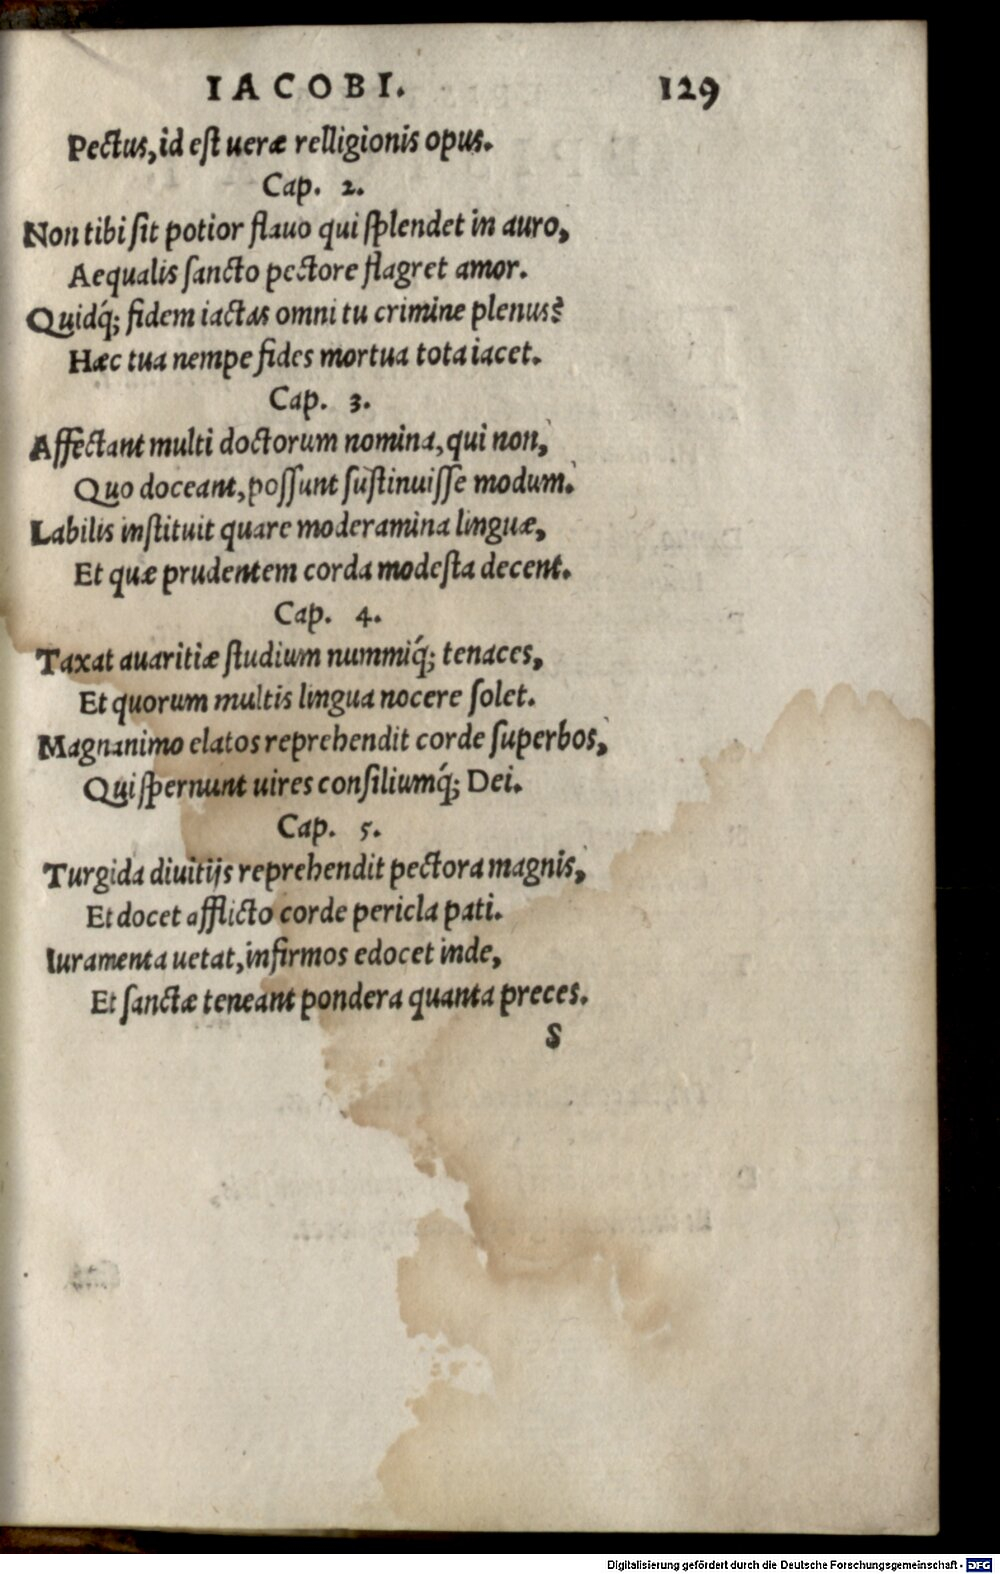 IACOBI. 129
Pectus, id est ueræ relligionis opus.
Cap. 2.
Non tibi sit potior flauo qui splendet in auro,
Aequalis sancto pectore flagret amor.
Quidq́; fidem iactas omni tu crimine plenus?
Hæc tua nempe fides mortua tota iacet.
Cap. 3.
Affectant multi doctorum nomina, qui non,
Quo doceant, possunt sustinuisse modum.
Labilis instituit quare moderamina linguæ,
Et quæ prudentem corda modesta decent.
Cap. 4.
Taxat auaritiæ studium nummiq́; tenaces,
Et quorum multis lingua nocere solet.
Magnanimo elatos reprehendit corde superbos,
Qui spernunt uires consiliumq́; Dei.
Cap. 5.
Turgida diuitijs reprehendit pectora magnis,
Et docet afflicto corde pericla pati.
Iuramenta uetat, infirmos edocet inde,
Et sanctæ teneant pondera quanta preces.
S
Digitalisierung gefördert durch die Deutsche Forschungsgemeinschaft - DFG